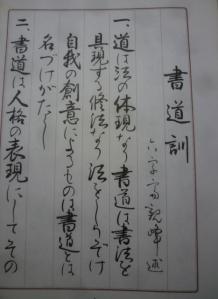 書道訓
述
一、道は法の体現なり書道は書法を
具現する修法なり法をしりぞけ
自我の創意によるものは書道とは
名づけがたし
二、書道は人格の表現にしてその